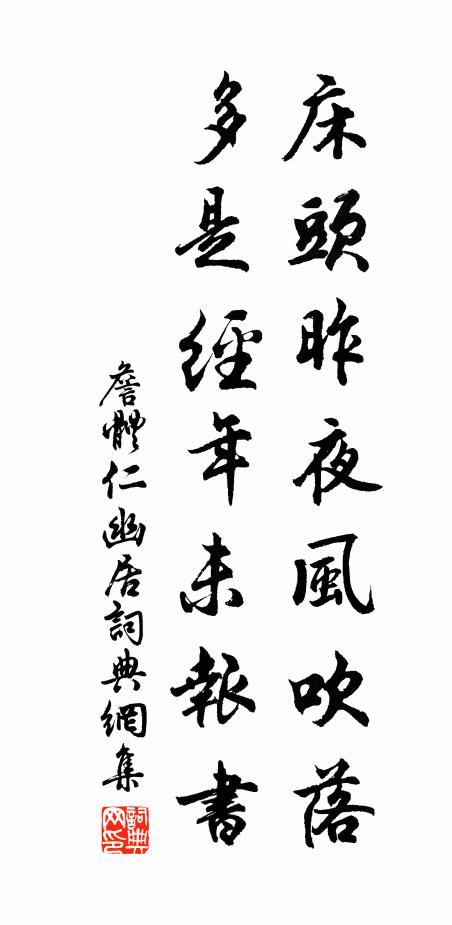 床頭昨夜風吹落
多是經年未報書
詹體仁幽居詞典網集
詞典網印